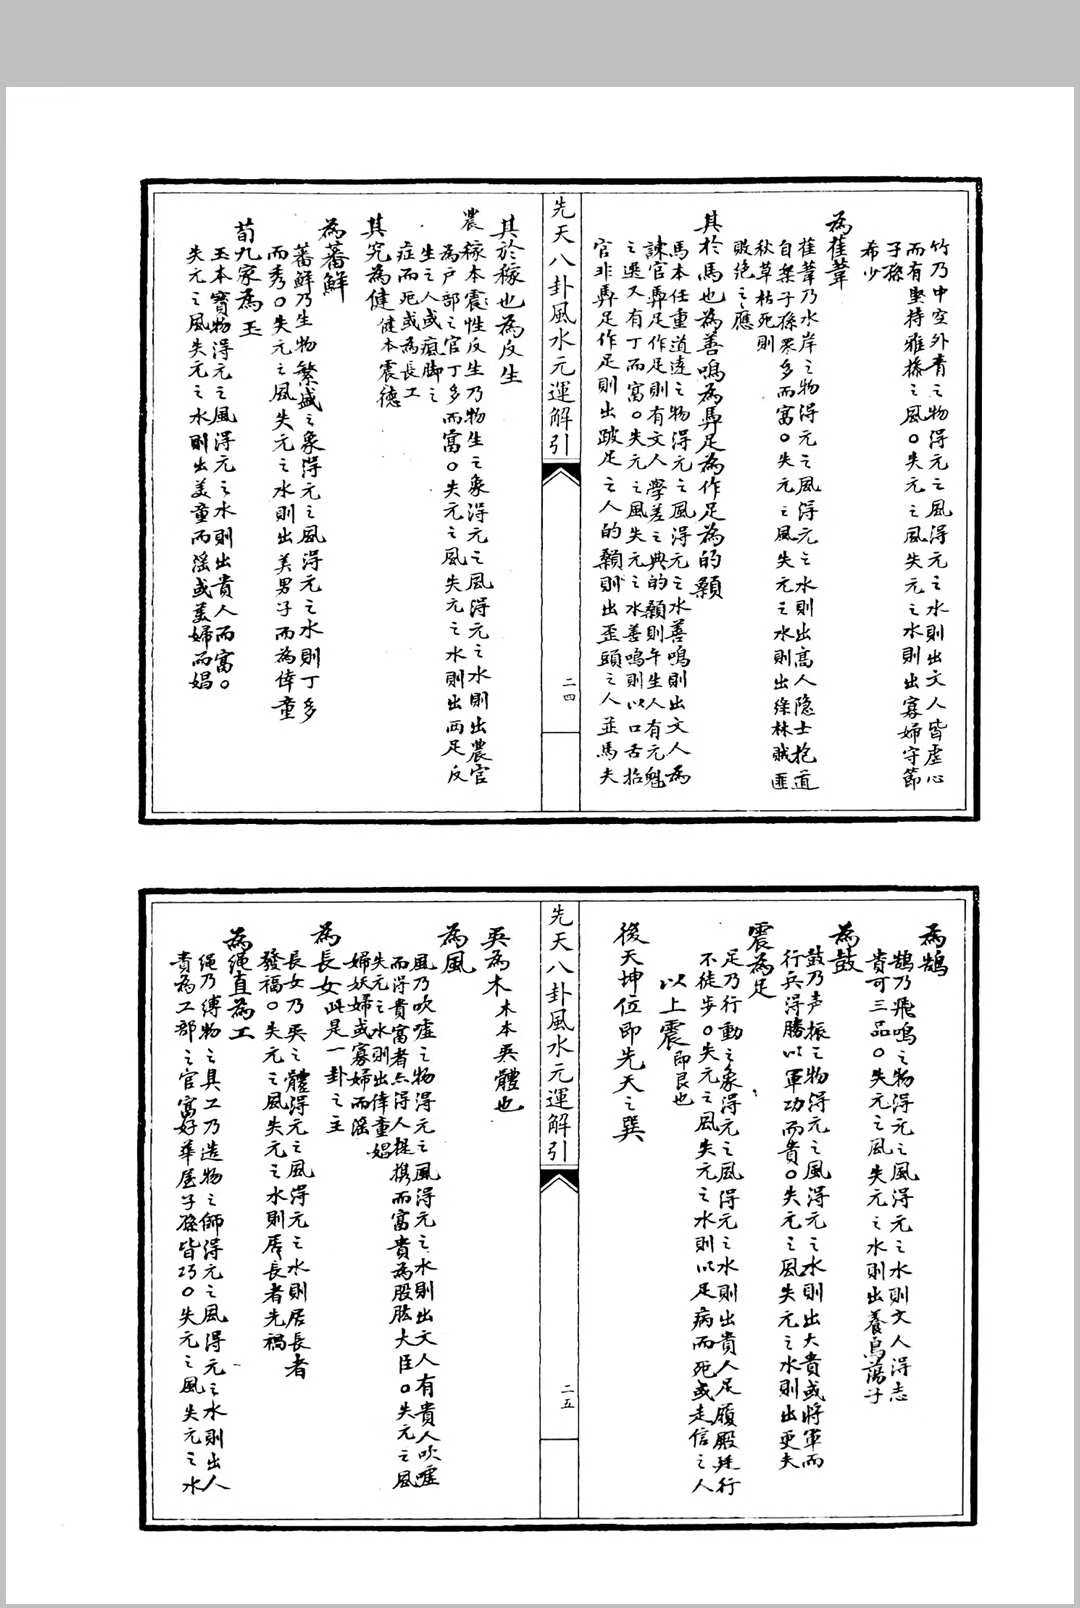 竹乃中空外青之物得元之風得元之水則出文人皆虛心
而有堅持雅操之風○失元之風失元之水則出寡婦守節
子孫
希少
為萑葦
萑葦乃水岸之物得元之風得元之水則出高人隐士抱道
自樂子孫眾多而富○失元之風失元之水則出綠林賊匪
秋草枯死則
敗絶之應
其於馬也為善鳴為馵足為作足為的顙
馬本任重道逺之物得元之風得元之水善鳴則出文人為
諫官馵足作足則有文人學差之典的顙則午生人有元魁
之選又有丁而富○失元之風失元之水善鳴則以口舌招
官非馵足作足則出跛足之人的顙則出歪頭之人並馬夫
先天八卦風水元運解引
二四
其於稼也為反生
農稼本震性反生乃物生之象得元之風得元之水則出農官
為戶部之官丁多而富○失元之風失元之水則出両足反
生之人或瘟脚之
症而死或為長工
其究為健 健本震德
為蕃鮮
蕃鮮乃生物繁盛之象得元之風得元之水則丁多
而秀○失元之風失元之水則出美男子而為倖童
荀九家為玉
玉本寳物得元之風得元之水則出貴人而富○
失元之風失元之水則出美童而滛或美婦而娼
為鵠
鵠乃飛鳴之物得元之風得元之水則文人得志
貴可三品○失元之風失元之水則出養鳥蕩子
為鼓
鼓乃声振之物得元之風得元之水則出大貴或將軍而
行兵得勝以軍功而貴○失元之風失元之水則出更夫
震為足
足乃行動之象得元之風得元之水則出貴人足履殿廷行
不徒步○失元之風失元之水則以足病而死或走信之人
以上震即艮也
後天坤位即先天之巽
先天八卦風水元運解引
二五
巽為木 木本巽體也
為風
風乃吹噓之物得元之風得元之水則出文人有貴人吹噓
而得貴富者亦得人提携而富貴為股肱大臣○失元之風
失元之水則出倖童娼
婦妖婦或寡婦而滛
為長女此是一卦之主
長女乃巽之體得元之風得元之水則居長者
發福○失元之風失元之水則居長者先禍
為繩直為工
繩乃縛物之具工乃造物之師得元之風得元之水則出人
貴為工部之官富好華屋子孫皆巧○失元之風失元之水